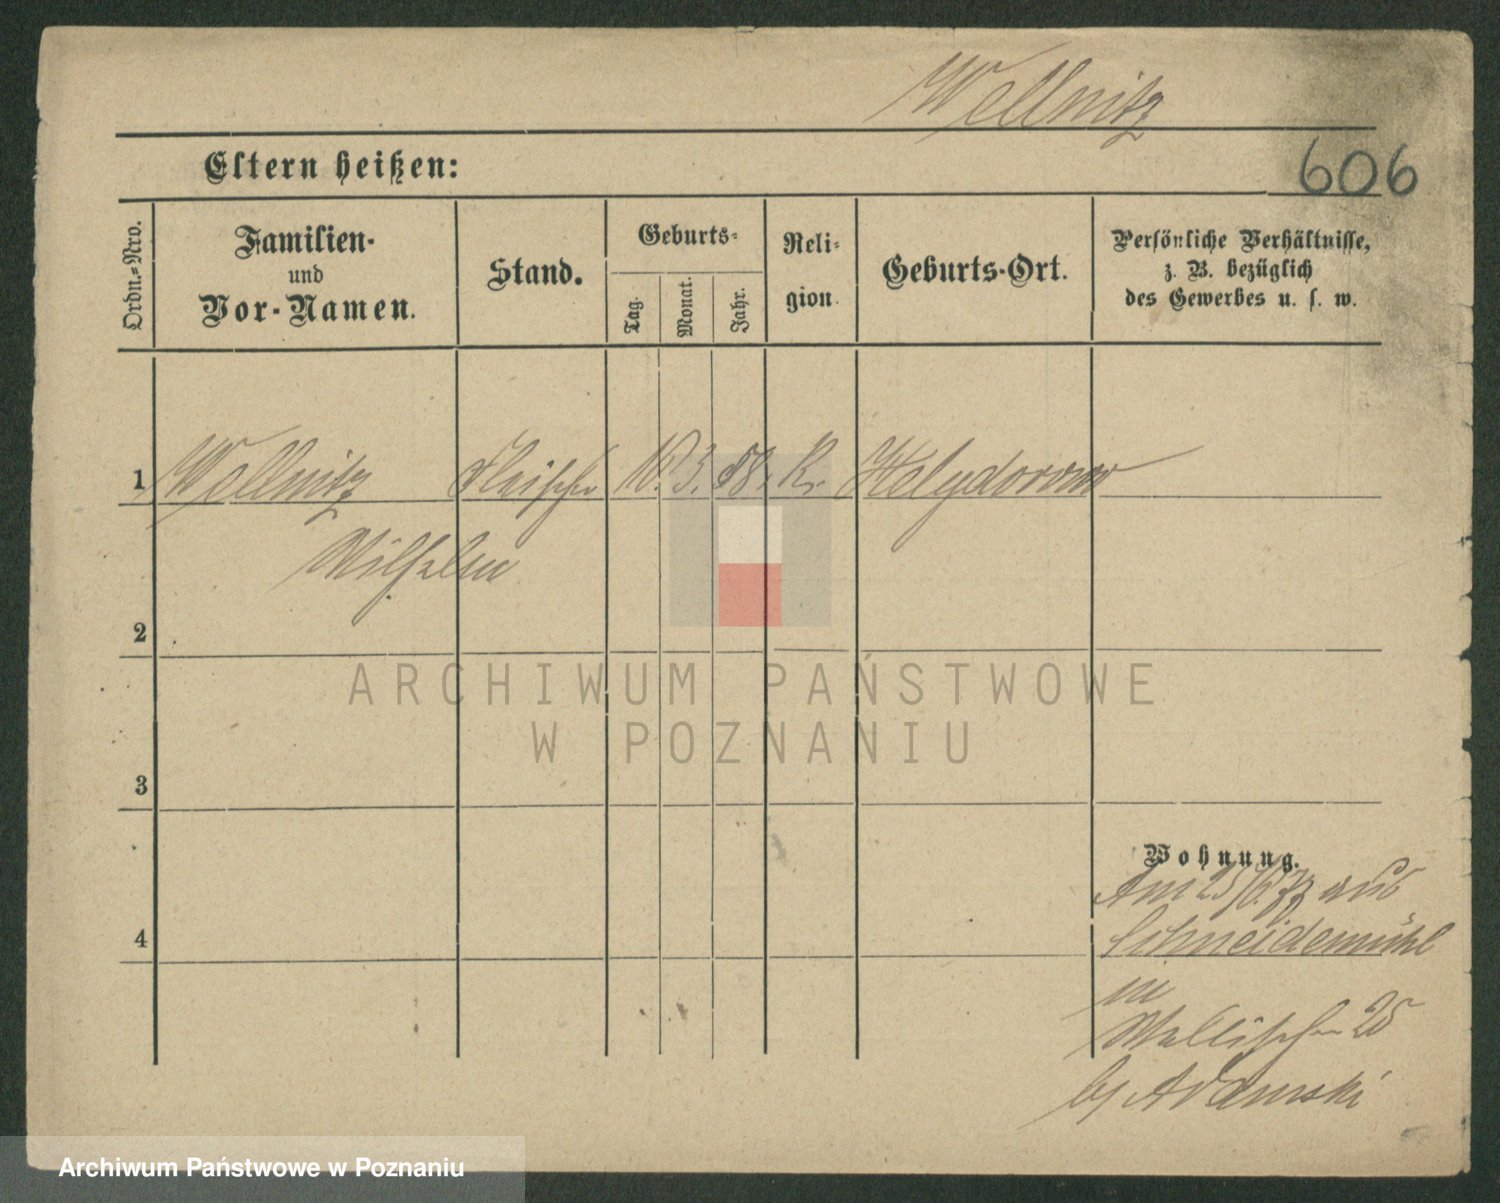 Wellnitz
Eltern heißen:
606
Ordn.=Nro.
Familien-
und
Vor-Namen.
Stand.
Geburts=
Tag.
Monat.
Jahr.
Reli=
gion.
Geburts-Ort.
Persönliche Verhältnisse,
z. B. bezüglich
des Gewerbes u. s. w.
1 Wellnitz Fleischer 3. 58. K.
Wilhelm
2
3
4
Wohnung.
Am aus
Schneidemühl
in
Wallischei 25
bei Adamski
ARCHIWUM PAŃSTWOWE
W POZNANIU
Archiwum Państwowe w Poznaniu